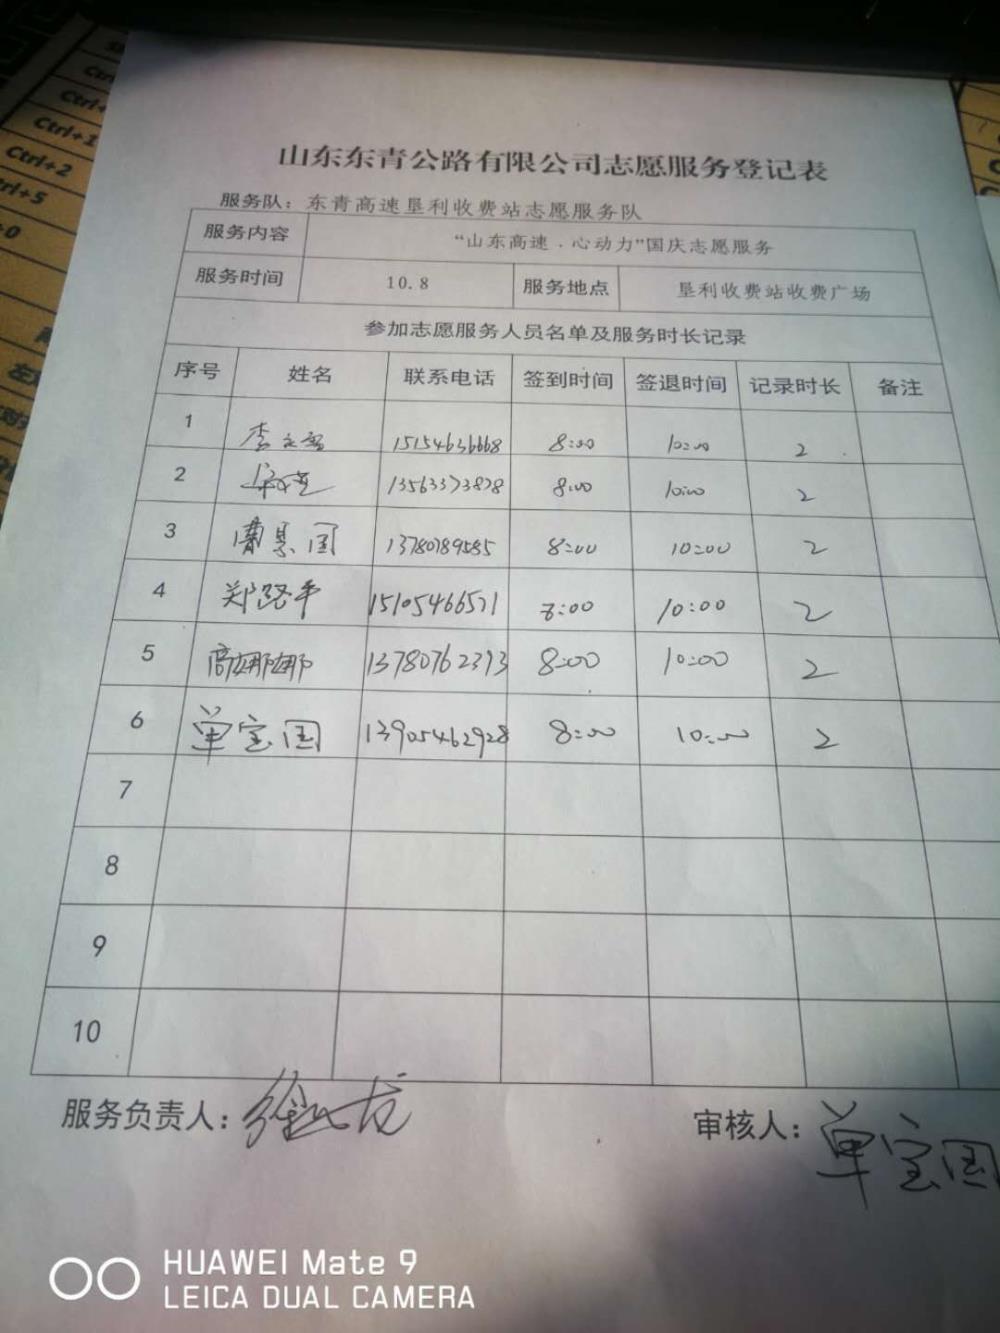 Ctrl+
Ctrl+2
山东东青公路有限公司志愿服务登记表
服务队：东青高速垦利收费站志愿服务队
服务内容 “山东高速．心动力”国庆志愿服务
服务时间 10.8 服务地点 垦利收费站收费广场
参加志愿服务人员名单及服务时长记录
序号 姓名 联系电话 签到时间 签退时间 记录时长 备注
1 15154636668 8:00 10:00 2
2 13563373878 8:00 10:00 2
3 13780789585 8:00 10:00 2
4 郑路平 15105466571 8:00 10:00 2
5 高娜娜 13780762393 8:00 10:00 2
6 单宝国 13905462928 8:00 10:00 2
7
8
9
10
服务负责人： 审核人：单宝国
HUAWEI Mate 9
LEICA DUAL CAMERA